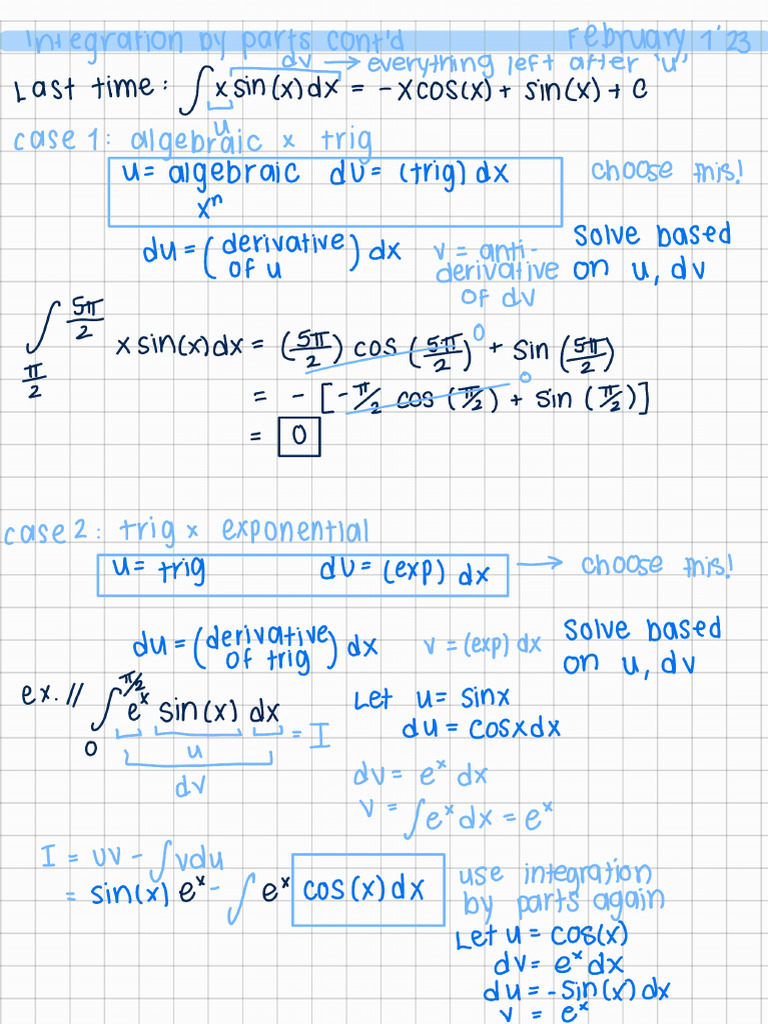 Integration by parts cont'd February 1 '23
dv → everything left after 'u'
Last time: ∫ x sin(x) dx = -xcos(x) + sin(x) + C
u
case 1: algebraic x trig
u = algebraic dv = (trig) dx choose this!
xⁿ
du = (derivative of u) dx v = anti-derivative of dv Solve based on u, dv
∫ 5π/2 π/2 x sin(x) dx = (5π/2) cos (5π/2) 0 + sin (5π/2)
= - [-π/2 cos (π/2) 0 + sin (π/2)]
= 0
case 2: trig x exponential
u = trig dv = (exp) dx → choose this!
du = (derivative of trig) dx v = (exp) dx Solve based on u, dv
ex. // ∫ π/2 0 eˣ sin(x) dx = I
u
dv
Let u = sinx
du = cosxdx
dv = eˣ dx
v = ∫eˣ dx = eˣ
I = uv - ∫vdu
= sin(x) eˣ - ∫ eˣ cos(x) dx
use integration
by parts again
Let u = cos(x)
dv = eˣ dx
du = -sin(x) dx
v = eˣ